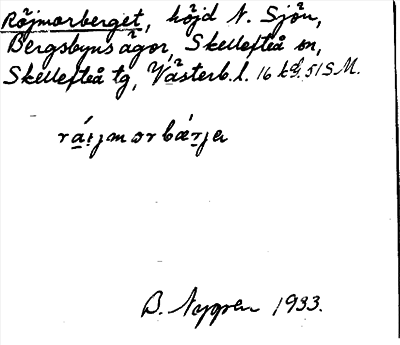 Röjmorberget, höjd N. Sjön,
Bergsbyns ägor, Skellefteå sn,
Skellefteå tg, Västerb. l. 16 kd. 51 S.M.
B. Nygren 1933.